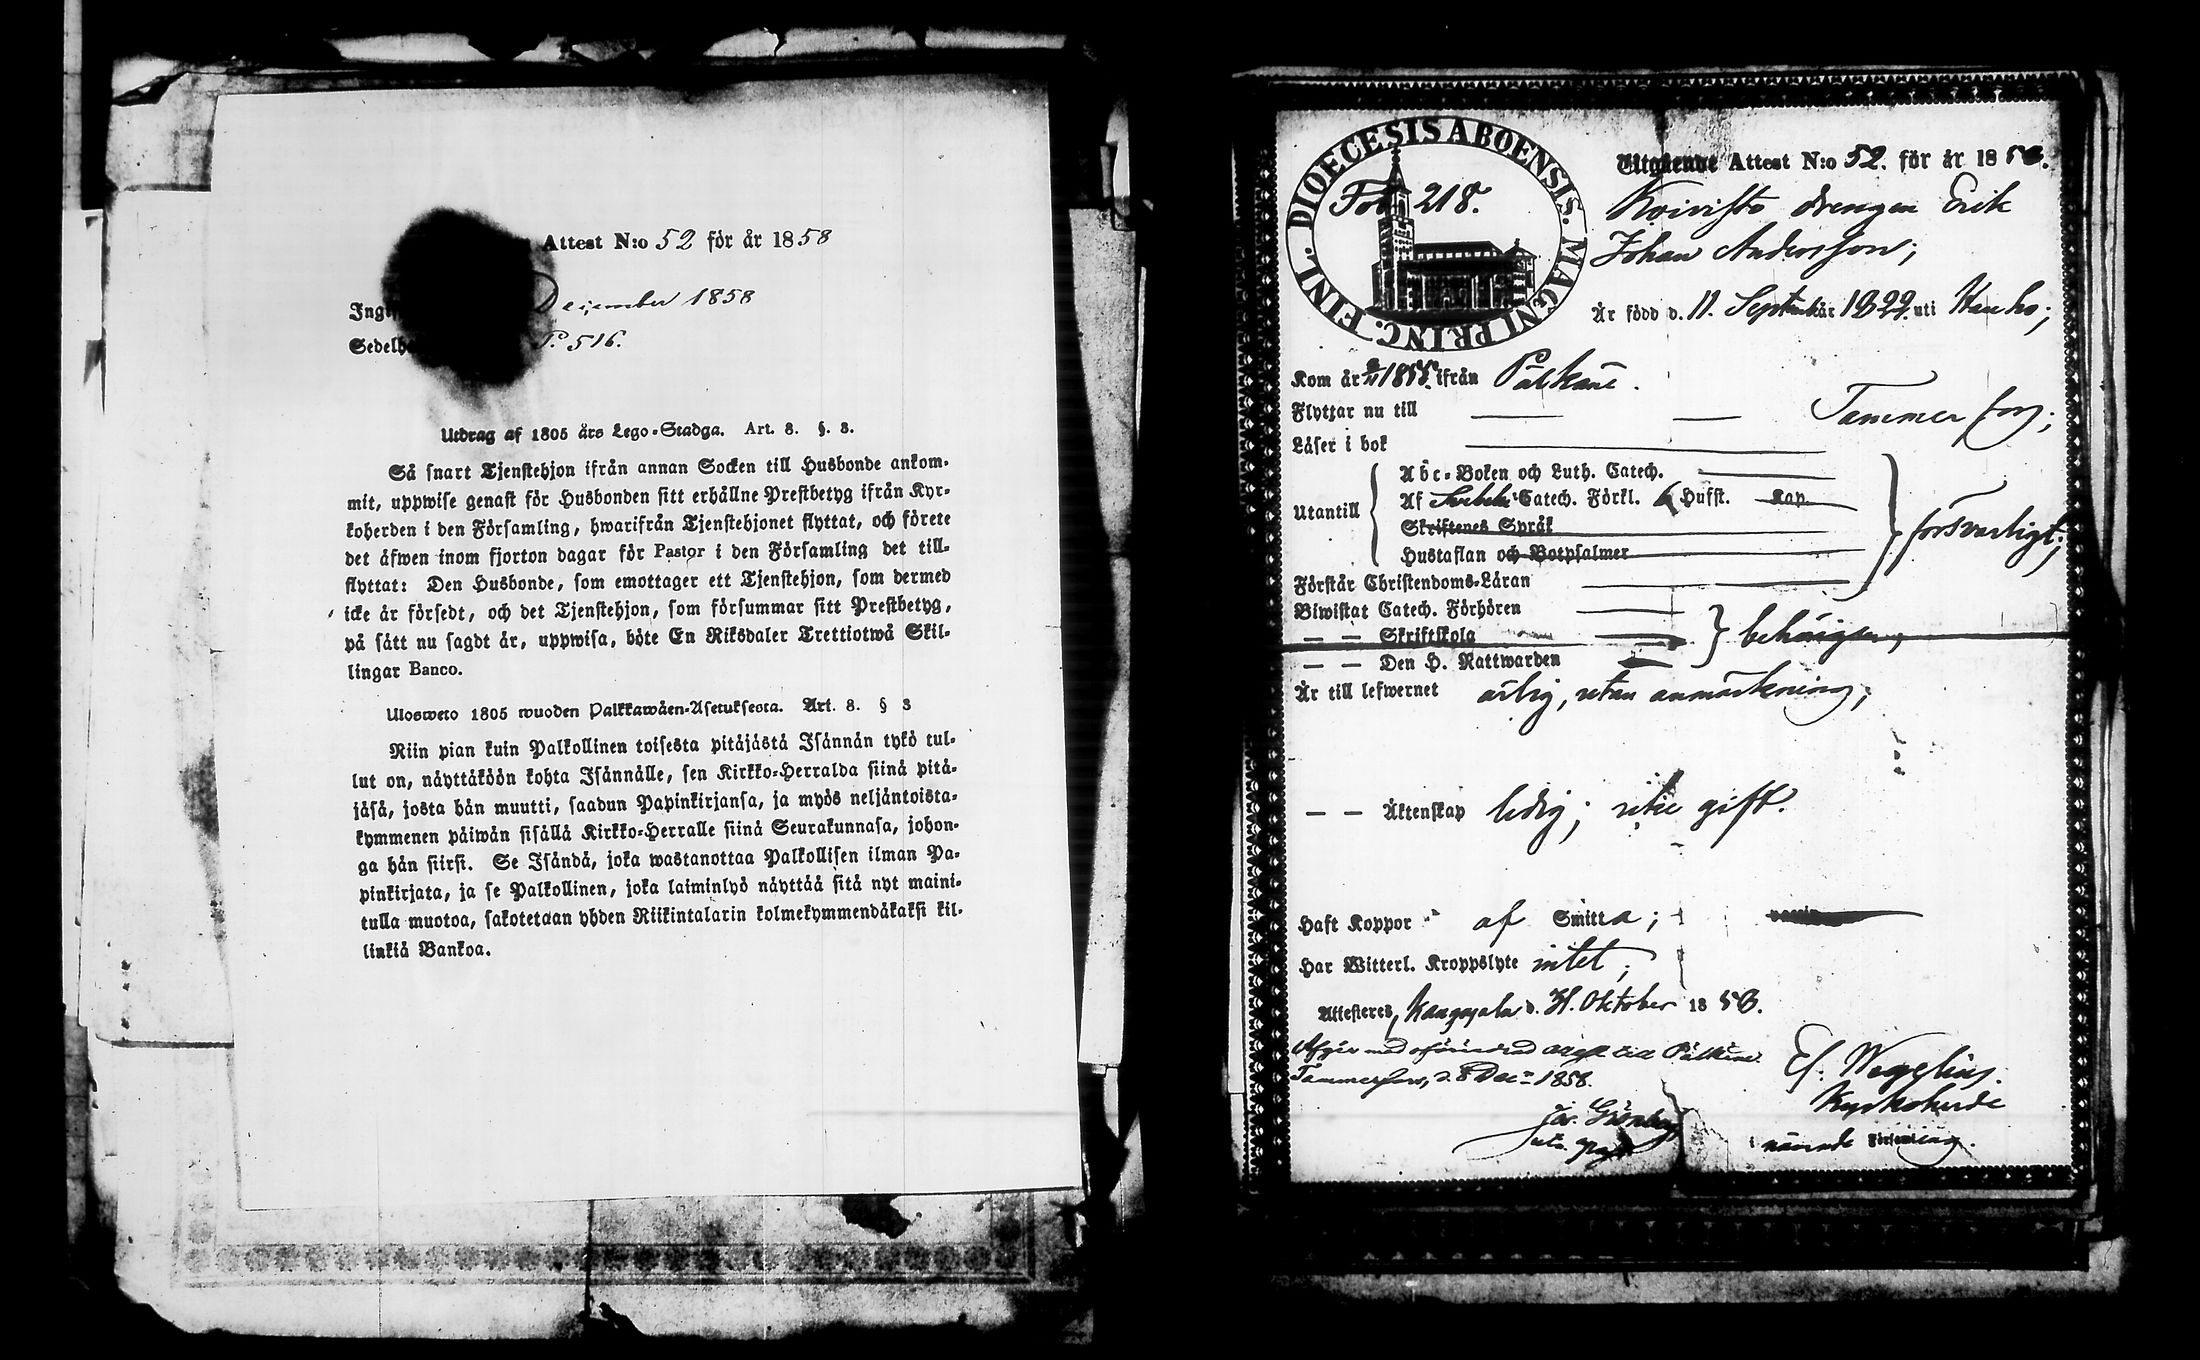 Attest N:o 52 för år 1858
December 1858
P. 516.
Utdrag af 1805 års Lego-Stadga. Art. 8. §. 3.
Så snart Tjenstehjon ifrån annan Socken till Husbonde ankom-
mit, uppwise genast för Husbonden sitt erhållne Prestbetyg ifrån Kyr-
koherden i den Församling, hwarifrån Tjenstehjonet flyttat, och förete
det äfwen inom fjorton dagar för Pastor i den Församling det till-
flyttat: Den Husbonde, som emottager ett Tjenstehjon, som dermed
icke är försedt, och det Tjenstehjon, som försummar sitt Prestbetyg,
på sätt nu sagdt är, uppwisa, böte En Riksdaler Trettiotwå Skil-
lingar Banco.
Ulosweto 1805 wuoden Palkkawäen-Asetuksesta. Art. 8. § 3
Niin pian kuin Palkollinen toisesta pitäjästä Isännän tykö tul-
lut on, näyttäköön kohta Isännälle, sen Kirkko-Herralda siinä pitä-
jäsä, josta hän muutti, saadun Papinkirjansa, ja myös neljäntoista-
kymmenen päiwän sisällä Kirkko-Herralle siinä Seurakunnasa, johon-
ga hän siirsi. Se Isändä, joka wastanottaa Palkollisen ilman Pa-
pinkirjata, ja se Palkollinen, joka laiminlyö näyttää sitä nyt maini-
tulla muotoa, sakotetaan yhden Riikintalarin kolmekymmendäkaksi kil-
linkiä Bankoa.
DIOECESIS ABOENSIS. MAGNI PRINC. FINL.
Fol 218.
Utgående Attest N:o 52. för år 1858.
Koivisto drengen Erik
Johan Andersson;
Är född d. 11. Septemb år 1822. uti Hauho;
Kom år 1855. ifrån Pälkäne.
Flyttar nu till Tammerfors;
Läser i bok
Utantill
Abc-Boken och Luth. Catech.
Af Svebelii Catech. Förkl. 6 Hufst. Kap.
Skriftenes Språk
Hustaflan och Botpsalmer
försvarligt;
Förstår Christendoms-Läran
Biwistat Catech. Förhören
— — Skriftskola
behörigen,
— — Den H. Nattwarden
Är till lefwernet ärlig, utan anmärkning;
— — Äktenskap ledig; icke gift.
Haft Koppor af Smitta;
Har Witterl. Kroppslyte intet;
Attesteras, Kangasala d. 31. Oktober 1858.
Afgår med oförändrad attest till Pälkäne.
Tammerfors, d. 8 Dec. 1858.
Ef. Wegelius.
Kyrkoherde
i nämnde Församling.